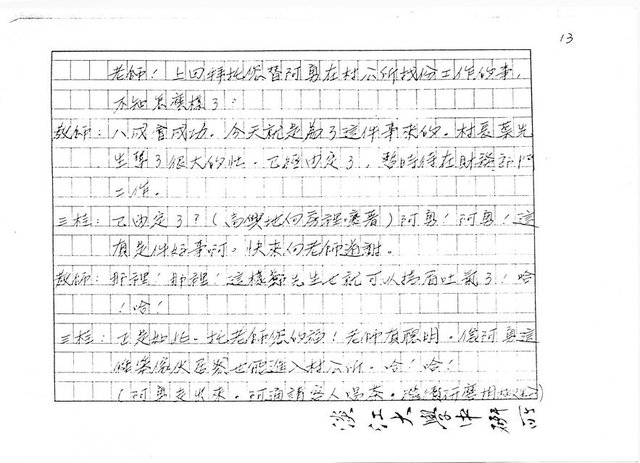 13
老師！上回拜托您替阿勇在村公所找份工作的事，
不知怎麼樣了？
教師：八成會成功。今天就是為了這件事來的。村長葉先
生幫了很大的忙。已經內定了，暫時待在財務部門
工作。
三桂：已內定了？（高興地向房裡嚷著）阿勇！阿勇！這
真是件好事阿，快來向老師道謝。
教師：那裡！那裡！這樣鄭先生也就可以揚眉吐氣了！哈
！哈！
三桂：正是如此。托老師您的福！老師真聰明。像阿勇這
傢伙居然也能進入村公所。哈！哈！
（阿勇走出來。阿滿請客人喝茶。
淡江大學中研所